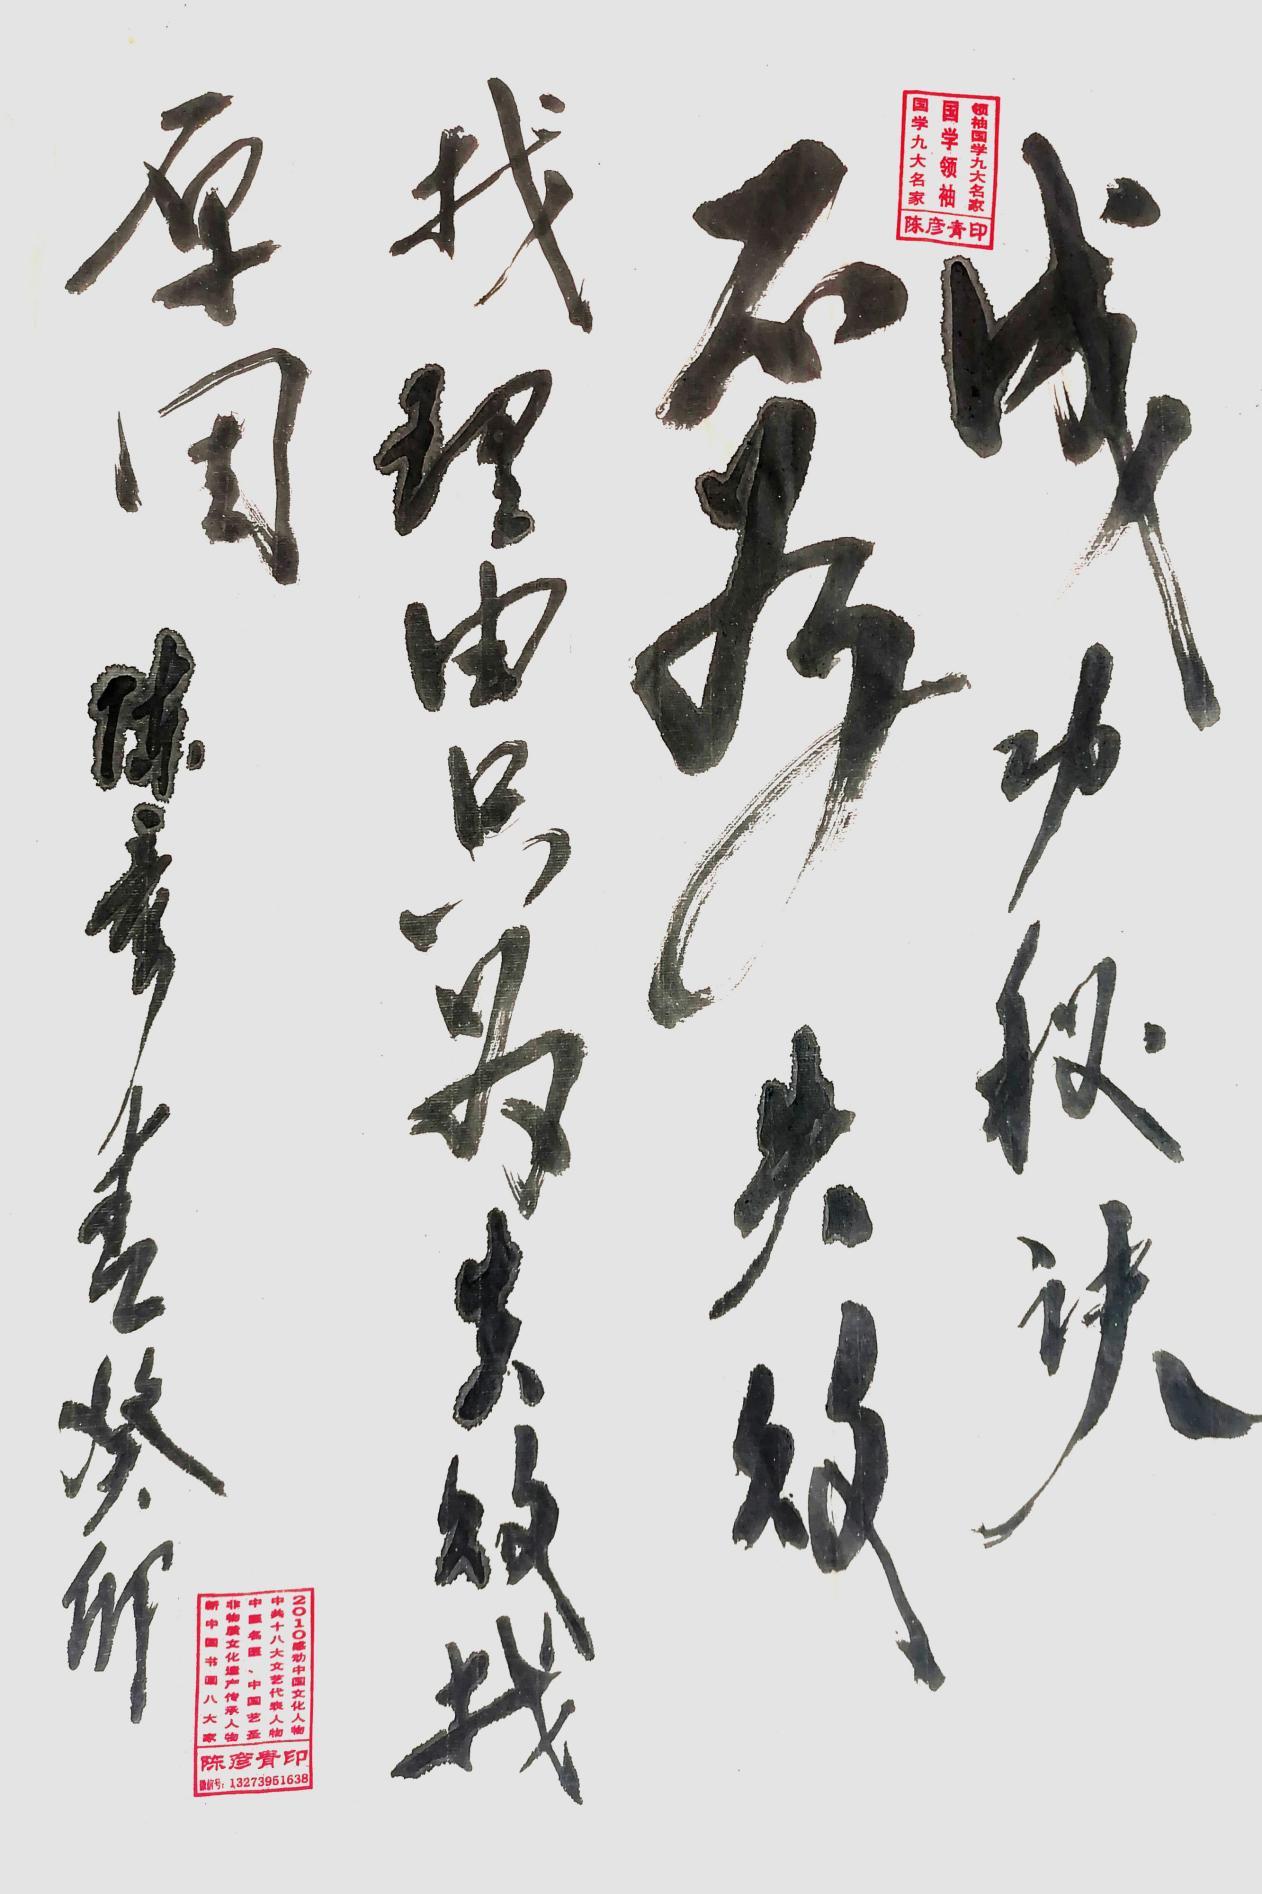 领袖国学九大名家
国学领袖
国学九大名家
陈彦青印
成功秘诀
不为失败
找理由只为失败找
原因 陈彦青癸卯
2010感动中国文化人物
中共十八大文艺代表人物
中医名医、中国艺圣
非物质文化遗产传承人物
新中国书画八大家
陈彦青印
微信号：13273951638